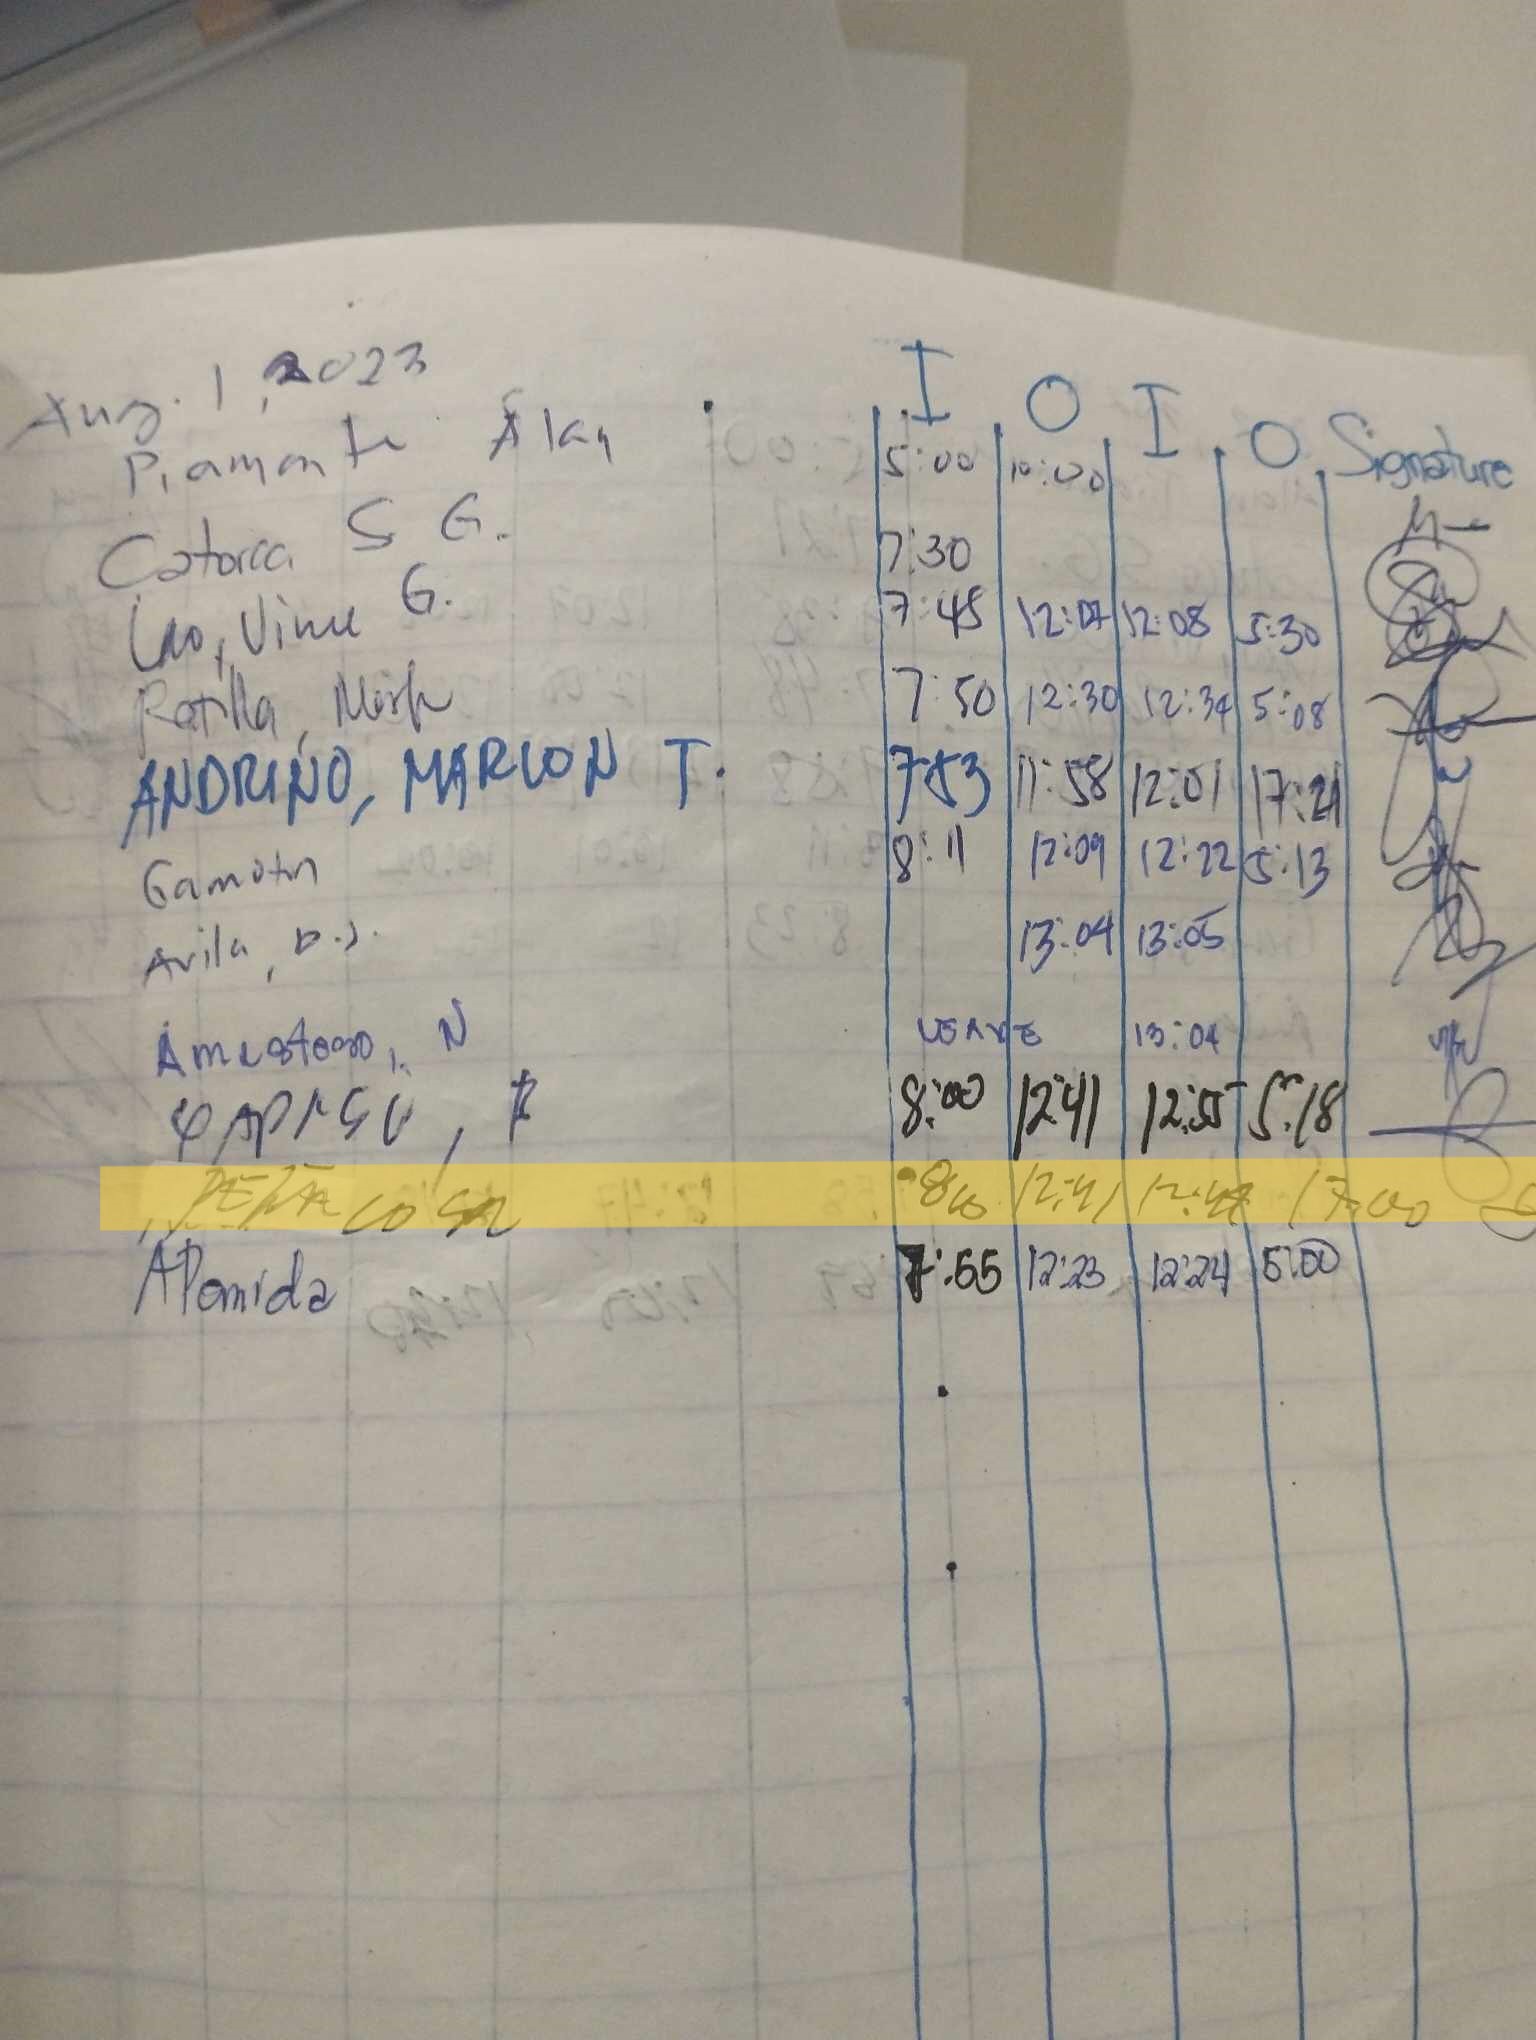 I O I O Signature
Aug. 1, 2023
Piamonte Alan 5:00 10:00
Catorca S G. 7:30
Lao, Vince G. 7:45 12:07 12:08 5:30
Ratilla, Mark 7:50 12:30 12:34 5:08
ANDRIÑO, MARLON T. 7:53 11:58 12:01 17:21
Gamotin 8:11 12:09 12:22 5:13
Avila, D.J. 13:04 13:05
N LEAVE 13:04
8:00 12:41 12:55 5:18
12:41 17:00
Alomida 7:55 12:23 12:24 5:00